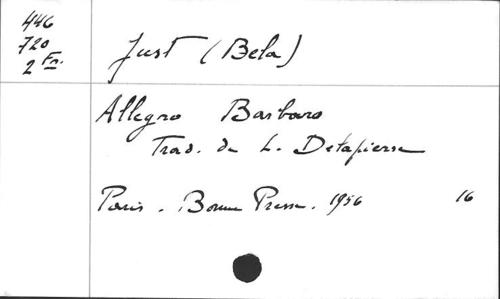 446
720
2 Fr.
Just (Bela)
Allegro Barbaro
Trad. de L. Detapierre
Paris. Bonne Presse. 1956 16